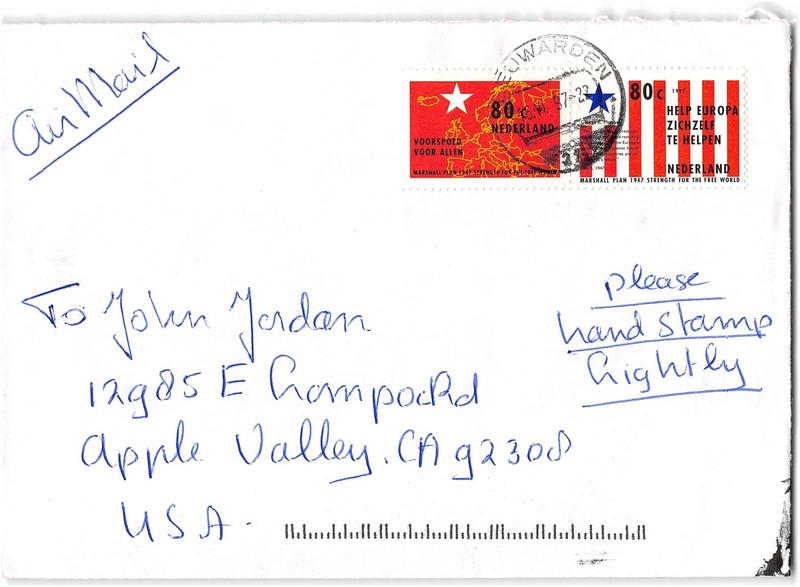 Air Mail
EUWARDEN
97-23
80 c
NEDERLAND
VOORSPOED
VOOR ALLEN
MARSHALL PLAN 1947 STRENGTH FOR THE FREE WORLD
80 c
1997
HELP EUROPA
ZICHZELF
TE HELPEN
NEDERLAND
MARSHALL PLAN 1947 STRENGTH FOR THE FREE WORLD
please
hand stamp
lightly
To John Jordan
12985 E
Apple Valley. CA 92308
USA.